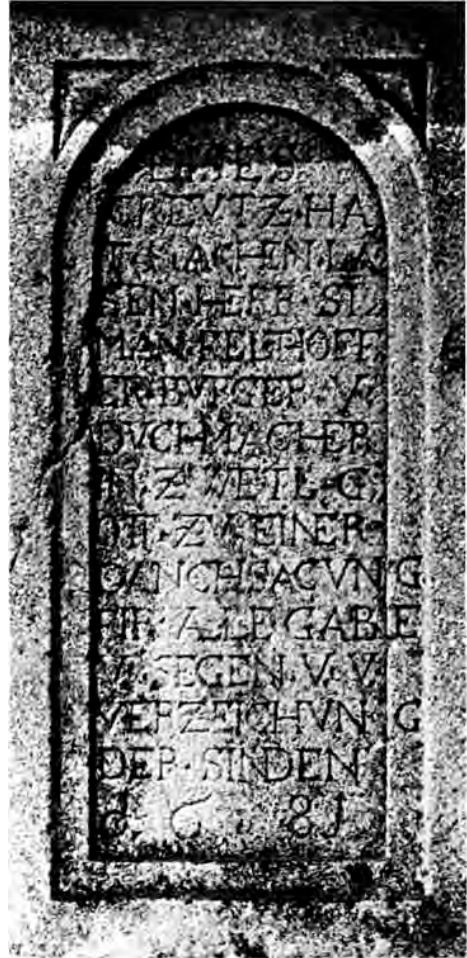 DISES
CREVTZ·HA
T·MACHEN·LA
SEN·HERR·SI
MAN·FELHOFF
ER·BVRGER·V·
DVCHMACHER
IN·ZWETL·G
OTT·ZV·EINER
DANCHSAGVNG
FIR·ALLE GABE
V·SEGEN·V·V
VERZEICHVNG
DER·SINDEN
1681